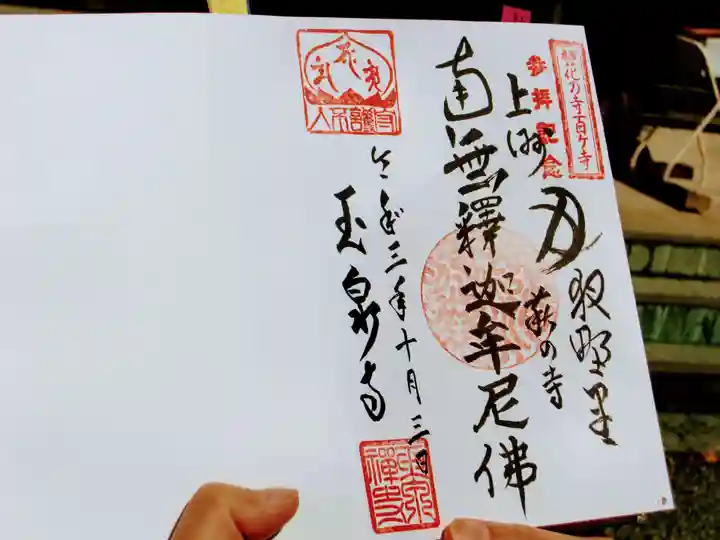 花の寺百ケ寺
参拝記念
上州
月夜野里
萩の寺
南無釋迦牟尼佛
令和三年十月三日
玉泉寺